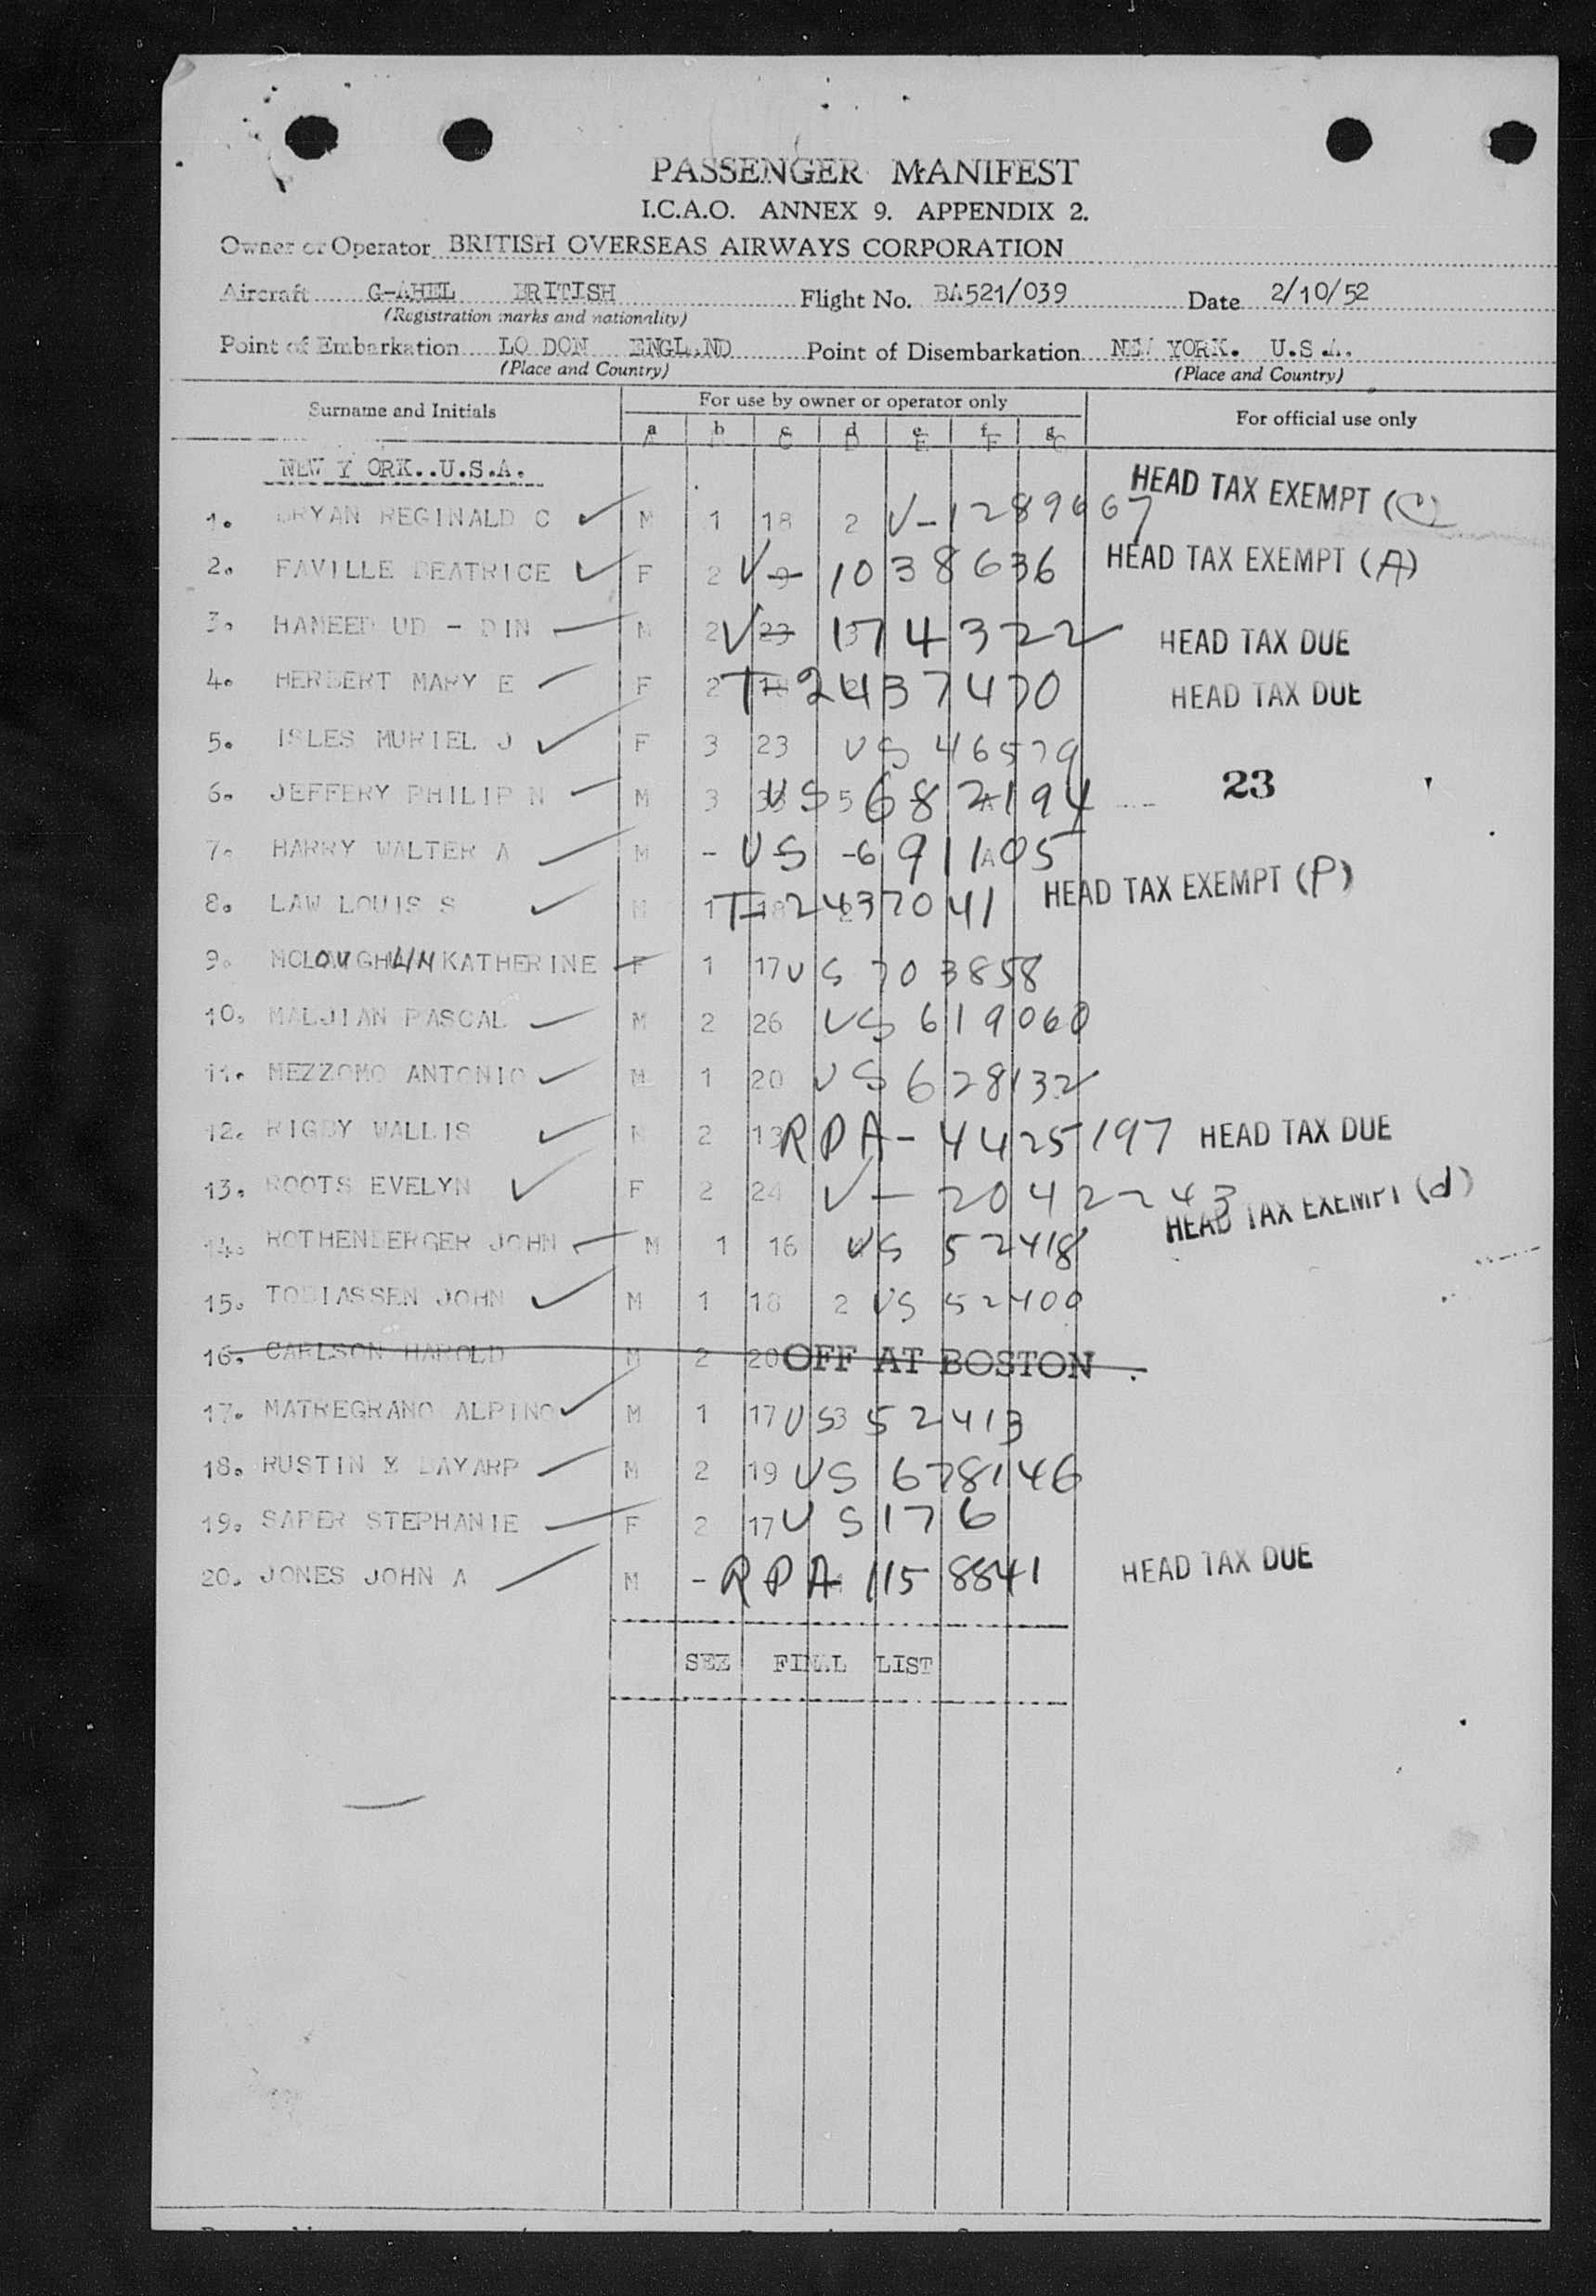 PASSENGER MANIFEST
I.C.A.O. ANNEX 9. APPENDIX 2.
Owner or Operator BRITISH OVERSEAS AIRWAYS CORPORATION
Aircraft G-AHEL BRITISH Flight No. BA521/039 Date 2/10/52
(Registration marks and nationality)
Point of Embarkation LO DON ENGLAND Point of Disembarkation NEW YORK. U.S.A.
(Place and Country) (Place and Country)
Surname and Initials For use by owner or operator only For official use only
a b c d e f g
NEW Y ORK..U.S.A.
1. BRYAN REGINALD C M 1 18 2 V-1289667 HEAD TAX EXEMPT (C)
2. FAVILLE BEATRICE F 2 9 V-1038636 HEAD TAX EXEMPT (A)
3. HAMEED UD - DIN M 2 23 V-174322 HEAD TAX DUE
4. HERBERT MARY E F 2 18 T-2437470 HEAD TAX DUE
5. ISLES MURIEL J F 3 23 US 46579
6. JEFFERY PHILIP N M 3 33 5 US 682194 23
7. HARRY WALTER A M - - - A US 691105
8. LAW LOUIS S M 1 18 2 T-2437041 HEAD TAX EXEMPT (P)
9. MCLOUGHLIN KATHERINE F 1 17 US 703858
10. MALJIAN PASCAL M 2 26 US 619060
11. MEZZOMO ANTONIO M 1 20 US 628132
12. RIGBY WALLIS M 2 13 RPA-4425197 HEAD TAX DUE
13. ROOTS EVELYN F 2 24 V-2042243 HEAD TAX EXEMPT (d)
14. ROTHENBERGER JOHN M 1 16 US 52418
15. TOBIASSEN JOHN M 1 18 2 US 52400
16. CARLSON HAROLD M 2 20 OFF AT BOSTON
17. MATREGRANO ALPINO M 1 17 3 US 52413
18. RUSTIN E BAYARP M 2 19 US 678146
19. SAPER STEPHANIE F 2 17 US 176
20. JONES JOHN A M - RPA 1158841 HEAD TAX DUE
SEE FINAL LIST